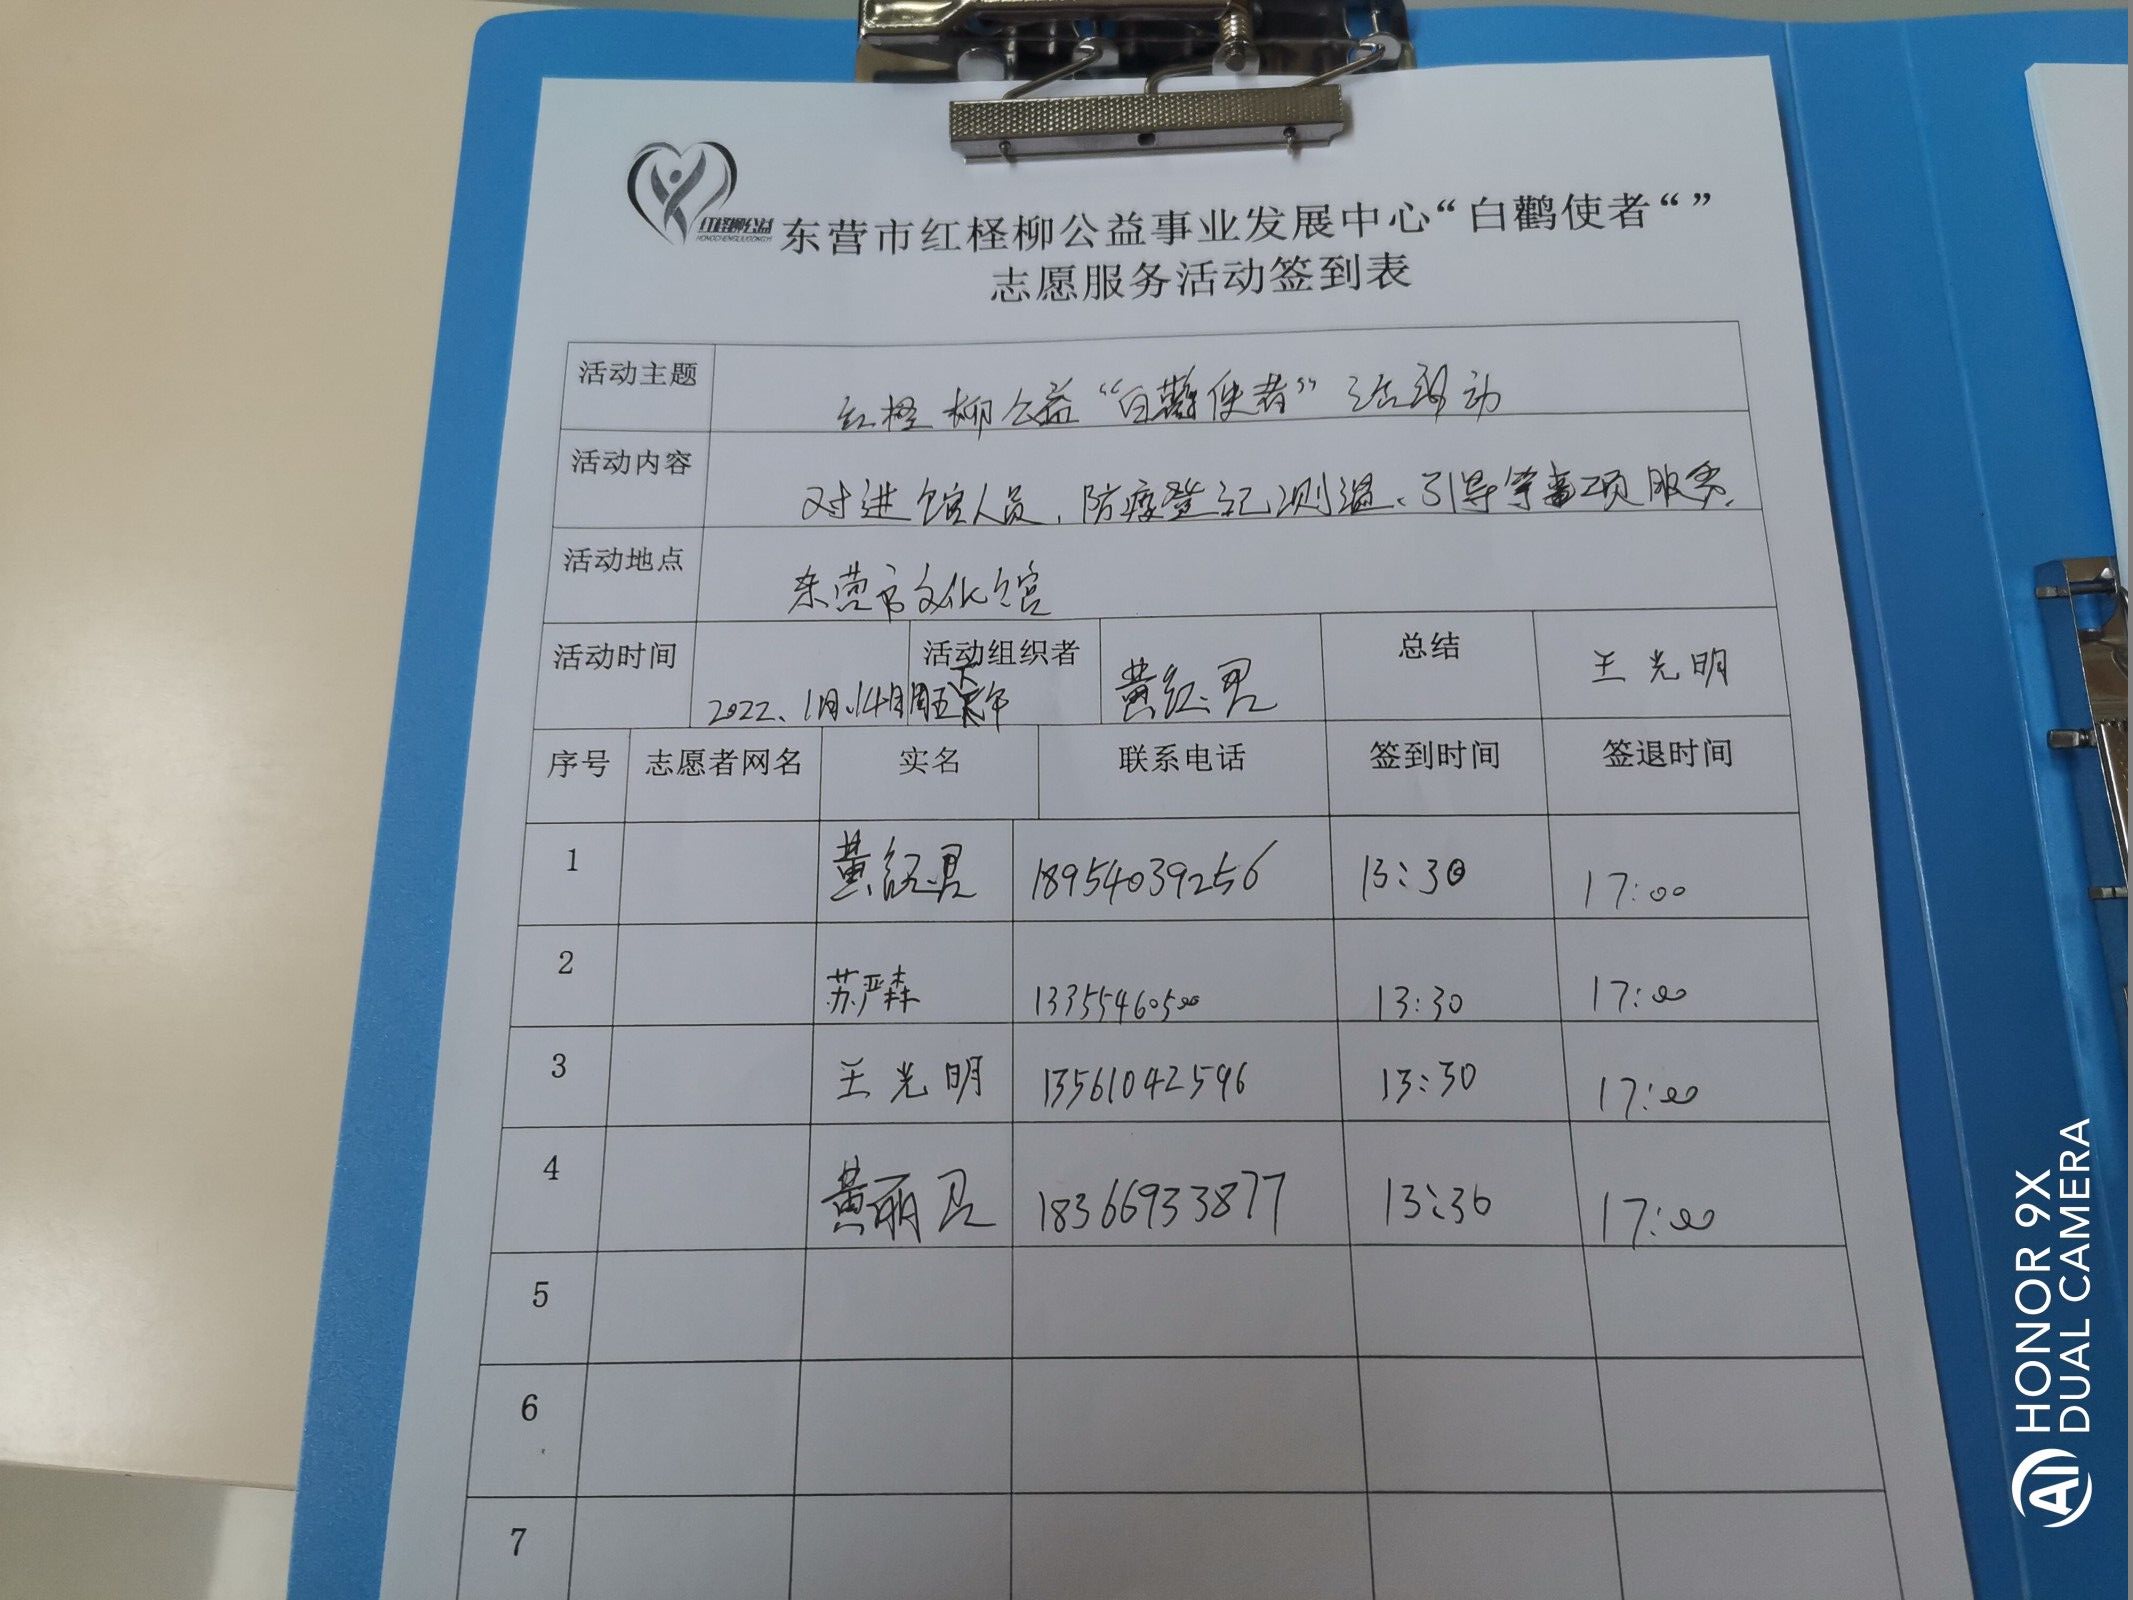 红柽柳公益
HONGCHENGLIUGONGYI
东营市红柽柳公益事业发展中心“白鹳使者“”
志愿服务活动签到表
活动主题 红柽柳公益“白鹳使者”活动
活动内容 对进馆人员，防疫登记测温、引导等事项服务.
活动地点 东营市文化馆
活动时间 2022、1月、14日周五下午 活动组织者 黄红君 总结 王光明
序号 志愿者网名 实名 联系电话 签到时间 签退时间
1 黄红君 18954039256 13:30 17:00
2 苏严森 13355460500 13:30 17:00
3 王光明 13561042596 13:30 17:00
4 黄丽君 18366933877 13:30 17:00
5
6
7
HONOR 9X
DUAL CAMERA
AI